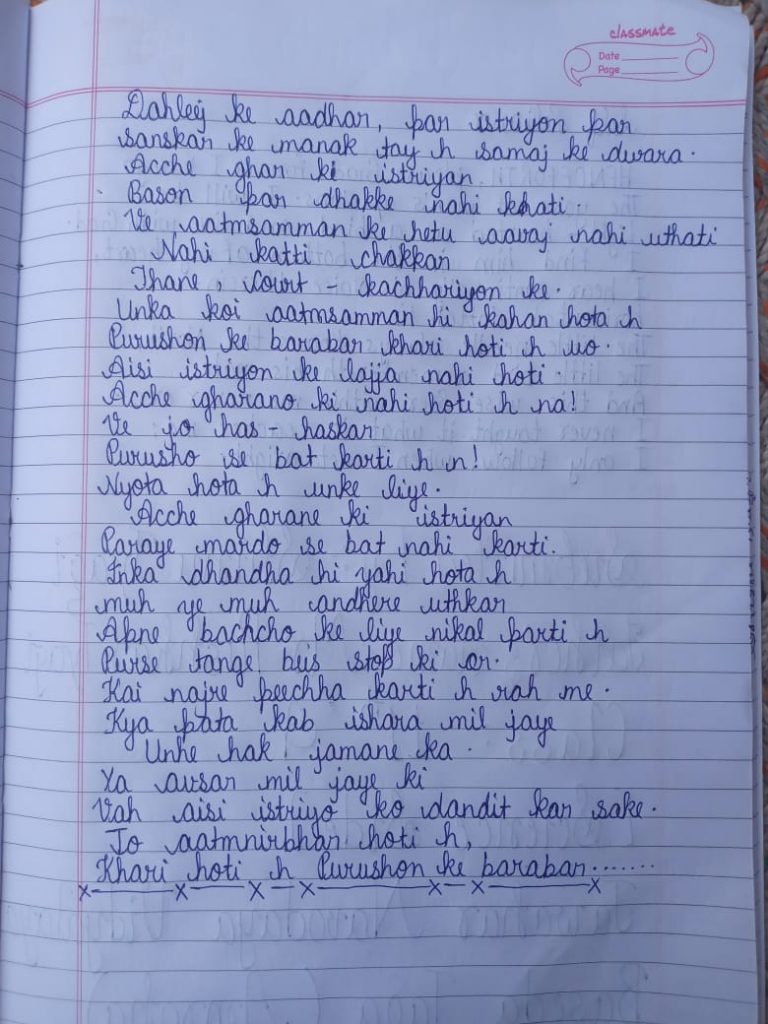 classmate
Date
Page
Dahleej ke aadhar, par istriyon par
sanskar ke manak tay h samaj ke dwara.
Acche ghar ki istriyan
Bason par dhakke nahi khati.
Ve aatmsamman ke hetu aavaj nahi uthati
Nahi katti chakkar
Thane, Court - kachhariyon ke.
Unka koi aatmsamman hi kahan hota h
Purushon ke barabar khari hoti h wo.
Aisi istriyon ke lajja nahi hoti.
Acche gharano ki nahi hoti h na!
Ve jo has - haskar
Purusho se bat karti h n!
Nyota hota h unke liye.
Acche gharane ki istriyan
Paraye mardo se bat nahi karti.
Inka dhandha hi yahi hota h
muh ye muh andhere uthkar
Apne bachcho ke liye nikal parti h
Purse tange bus stop ki or.
Kai najre peechha karti h rah me.
Kya pata kab ishara mil jaye
Unhe hak jamane ka.
Ya avsar mil jaye ki
Vah aisi istriyo ko dandit kar sake.
Jo aatmnirbhar hoti h,
Khari hoti h Purushon ke barabar.......